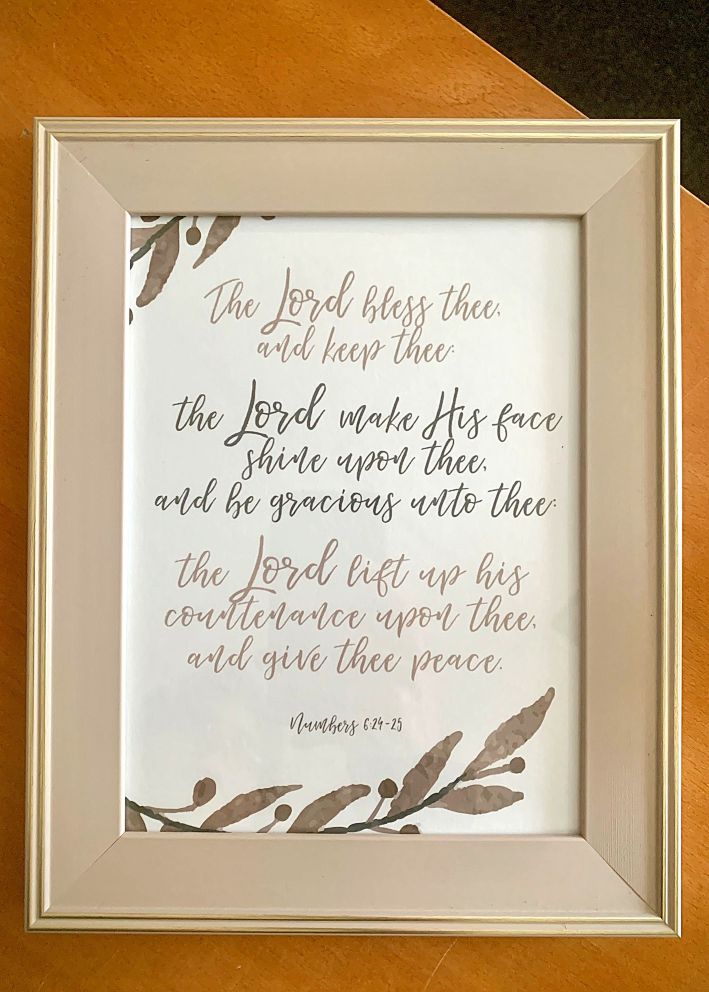 The Lord bless thee,
and keep thee:
the Lord make His face
shine upon thee,
and be gracious unto thee:
the Lord lift up his
countenance upon thee,
and give thee peace.
Numbers 6:24-25